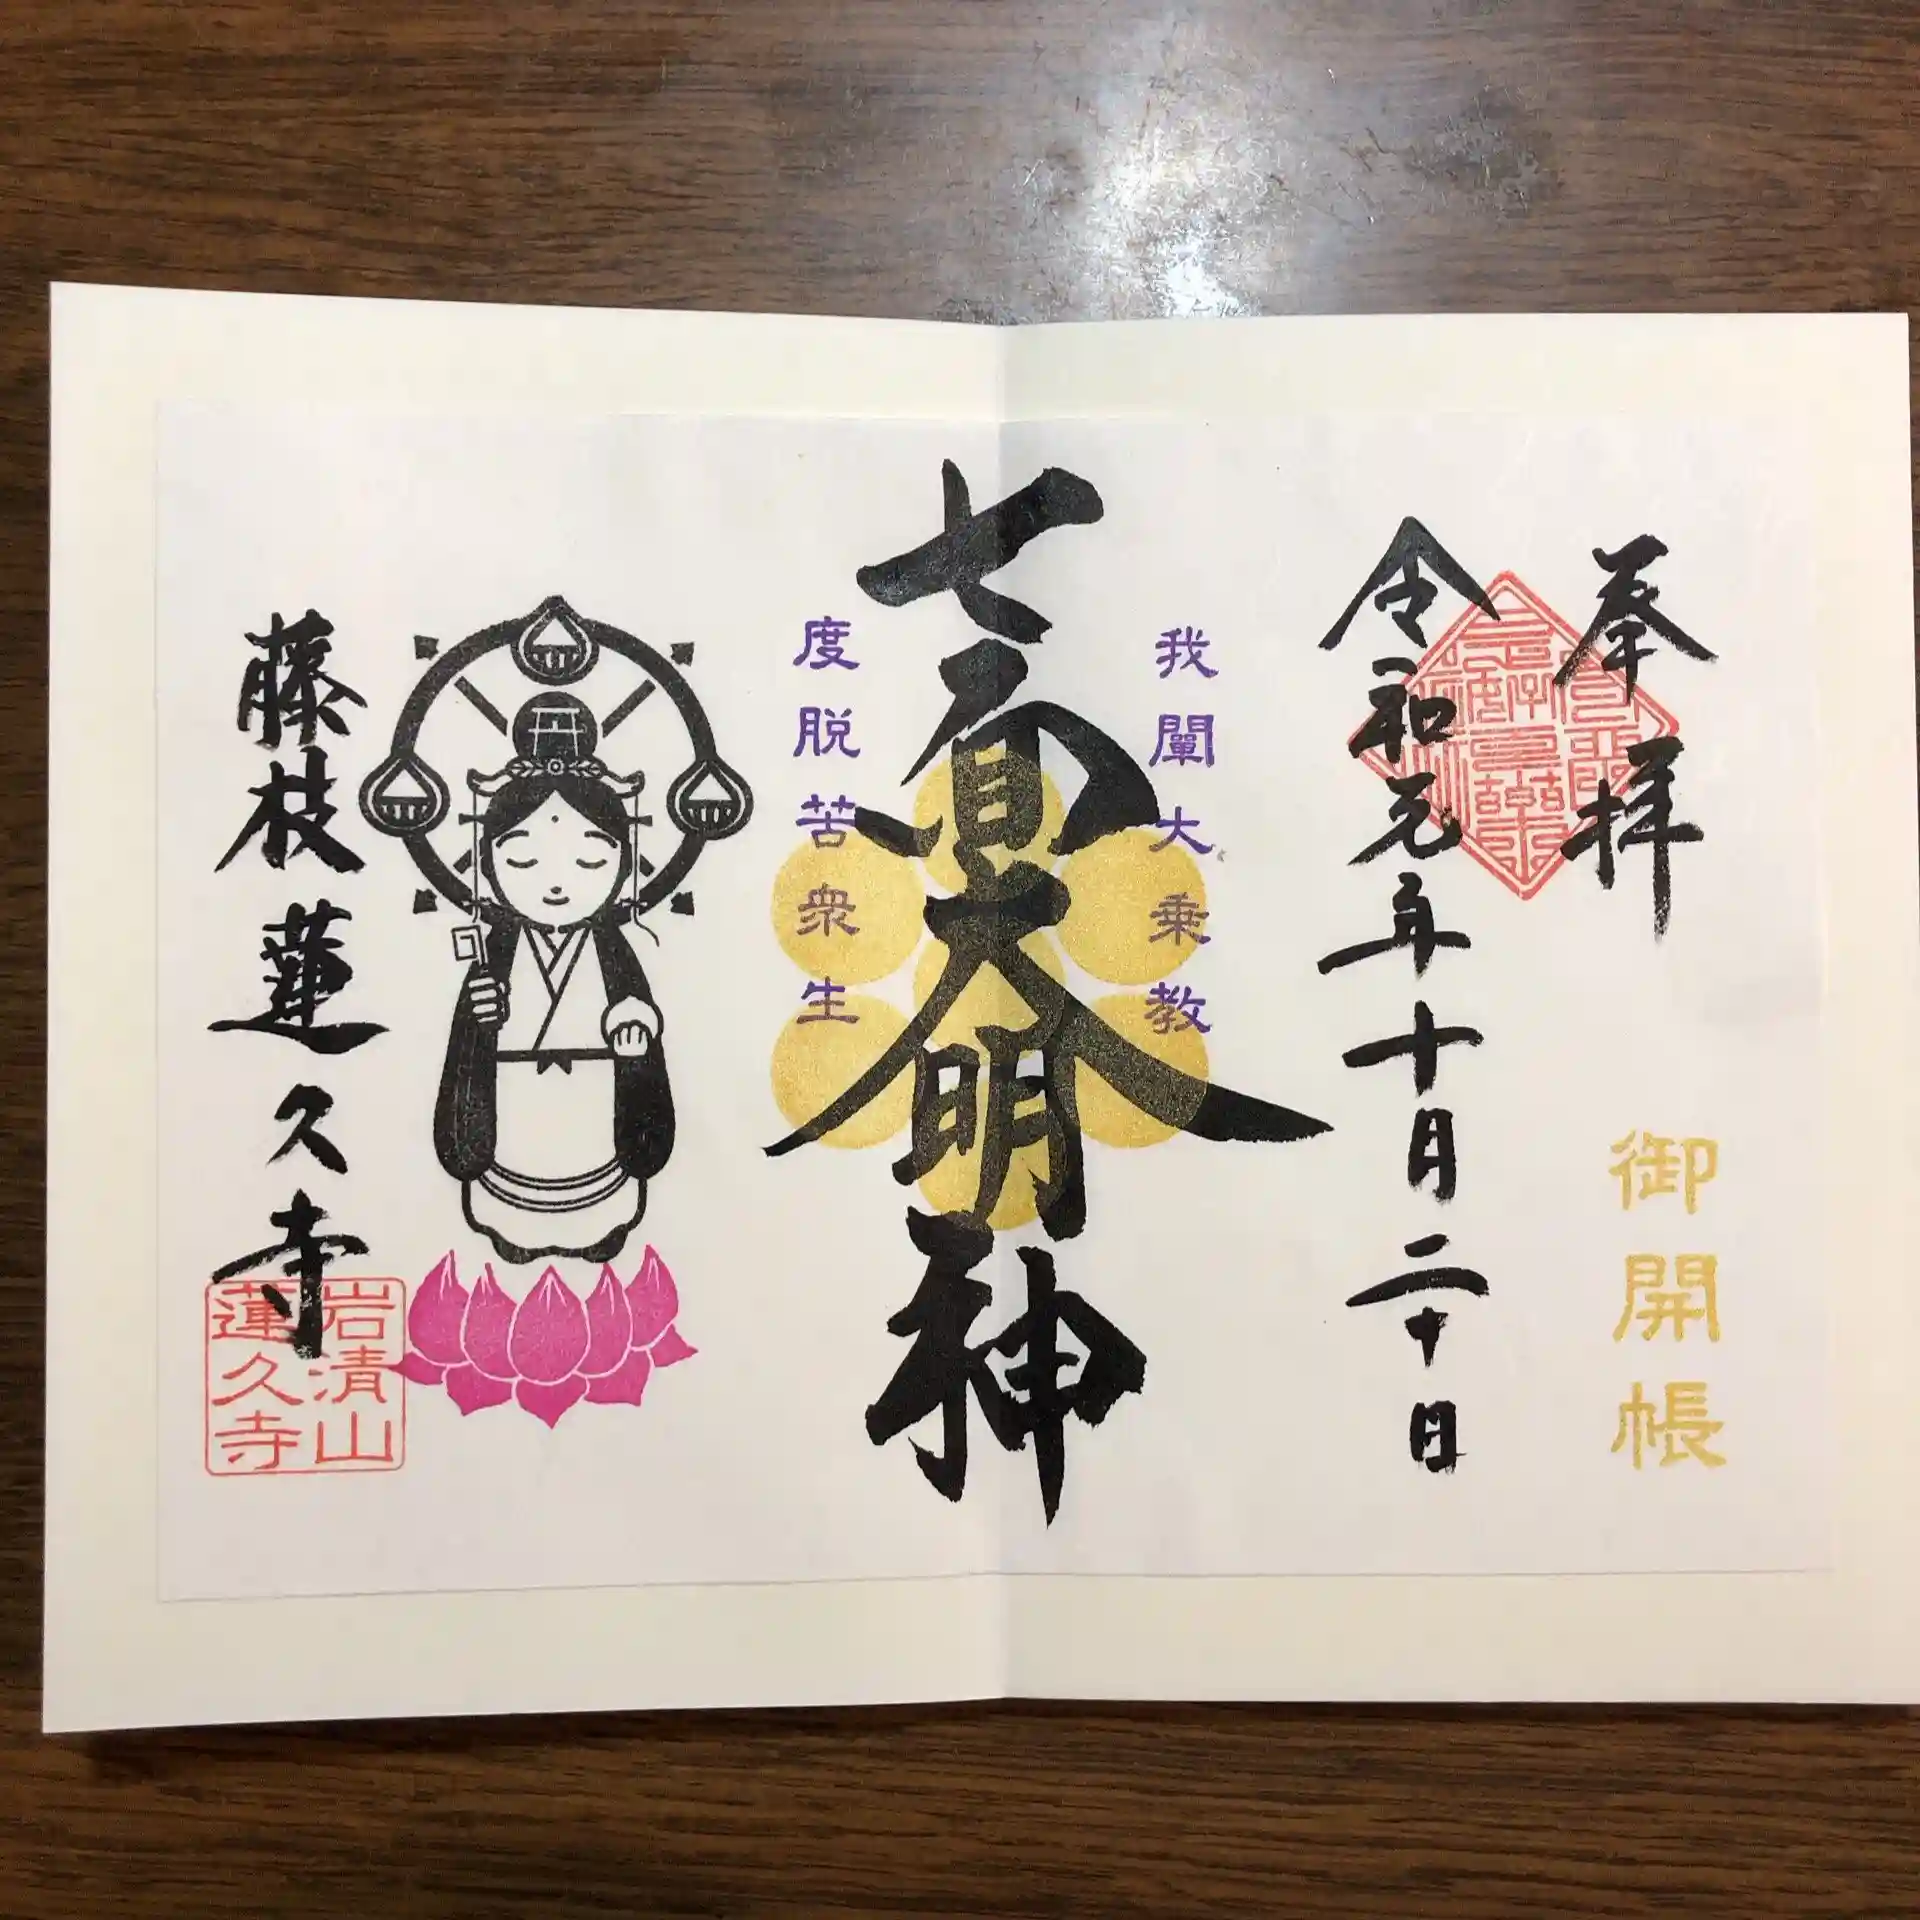 奉拝
御開帳
令和元年十月二十日
我闡大乗教
七面大明神
度脱苦衆生
藤枝 蓮久寺
岩清山
蓮久寺